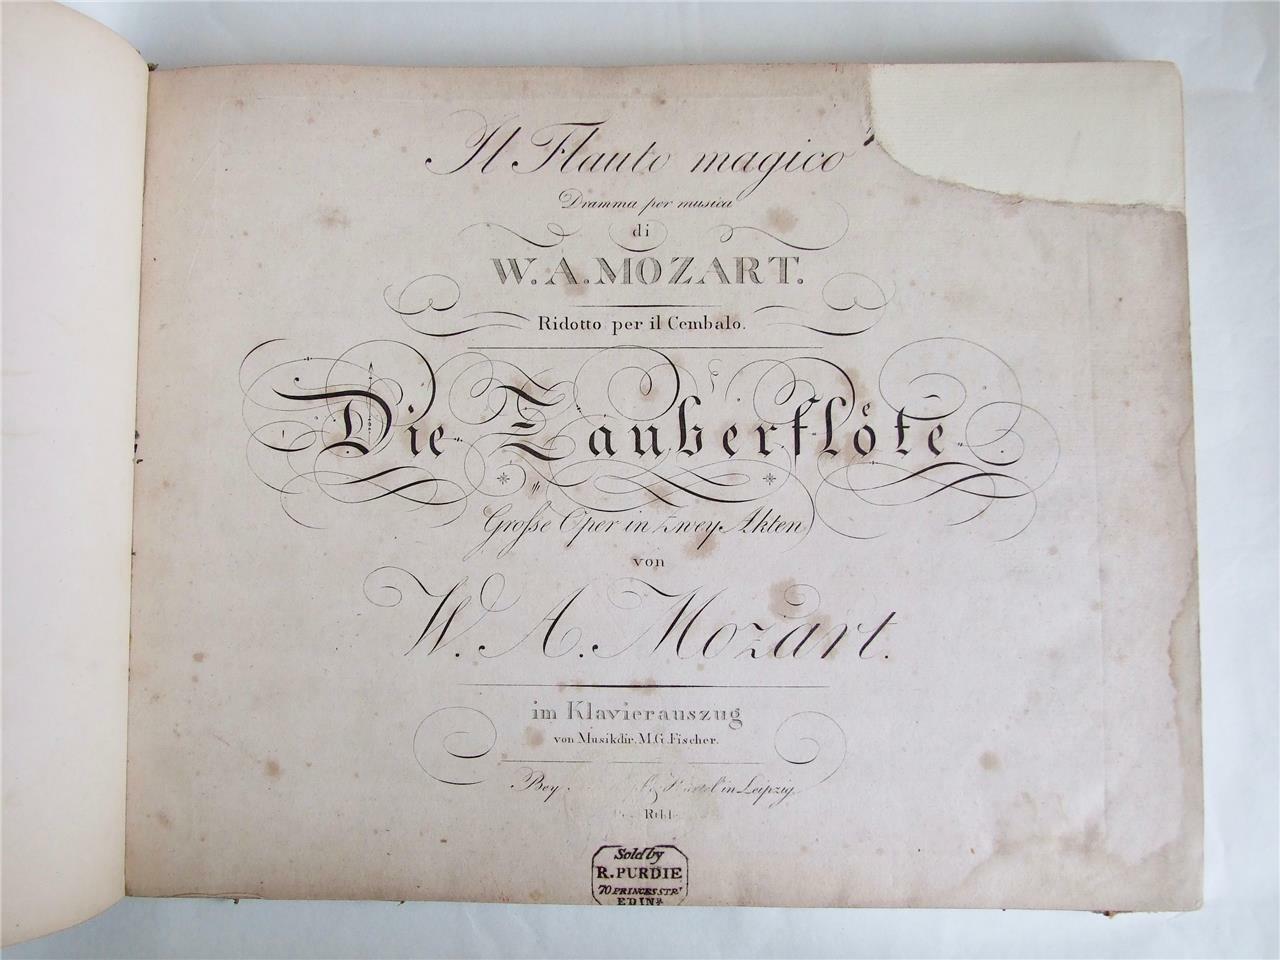 Il Flauto magico
Dramma per musica
di
W. A. MOZART.
Ridotto per il Cembalo.
Die Zauberfloͤte
Große Oper in zwey Akten
von
W. A. Mozart.
im Klavierauszug
von Musikdir. M. G. Fischer.
Bey Härtel in Leipzig
Sold by
R. PURDIE
70 PRINCES STRT
EDINR